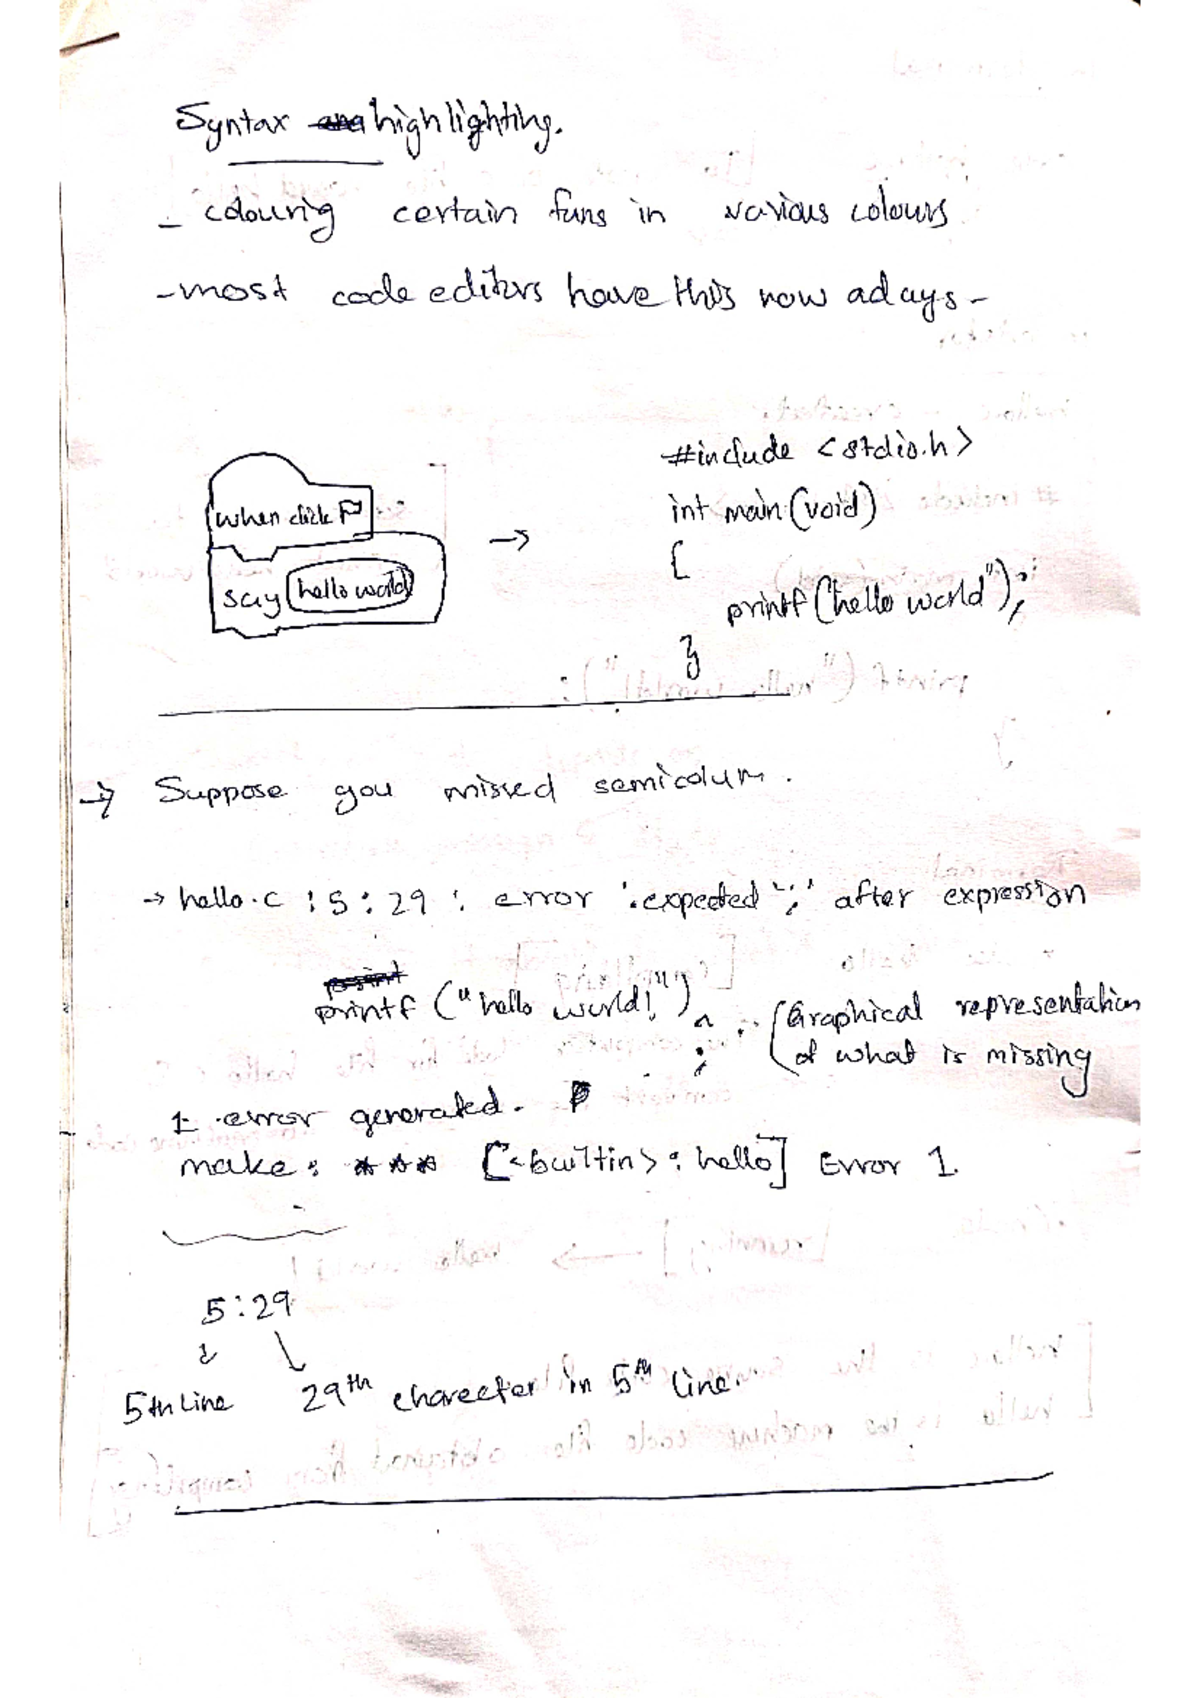 Syntax highlighting.
- colouring certain funs in various colours
- most code editors have this now adays -
when click
say hello world
→
#include <stdio.h>
int main (void)
{
printf("hello world");
}
→ Suppose you missed semicolum.
→ hello.c : 5 : 29 : error : expected ';' after expression
printf ("hello world!")
^
;
Graphical representation
of what is missing
1 error generated.
make: *** [<builtin>: hello] Error 1
5:29
5th Line 29th charecter in 5th line.